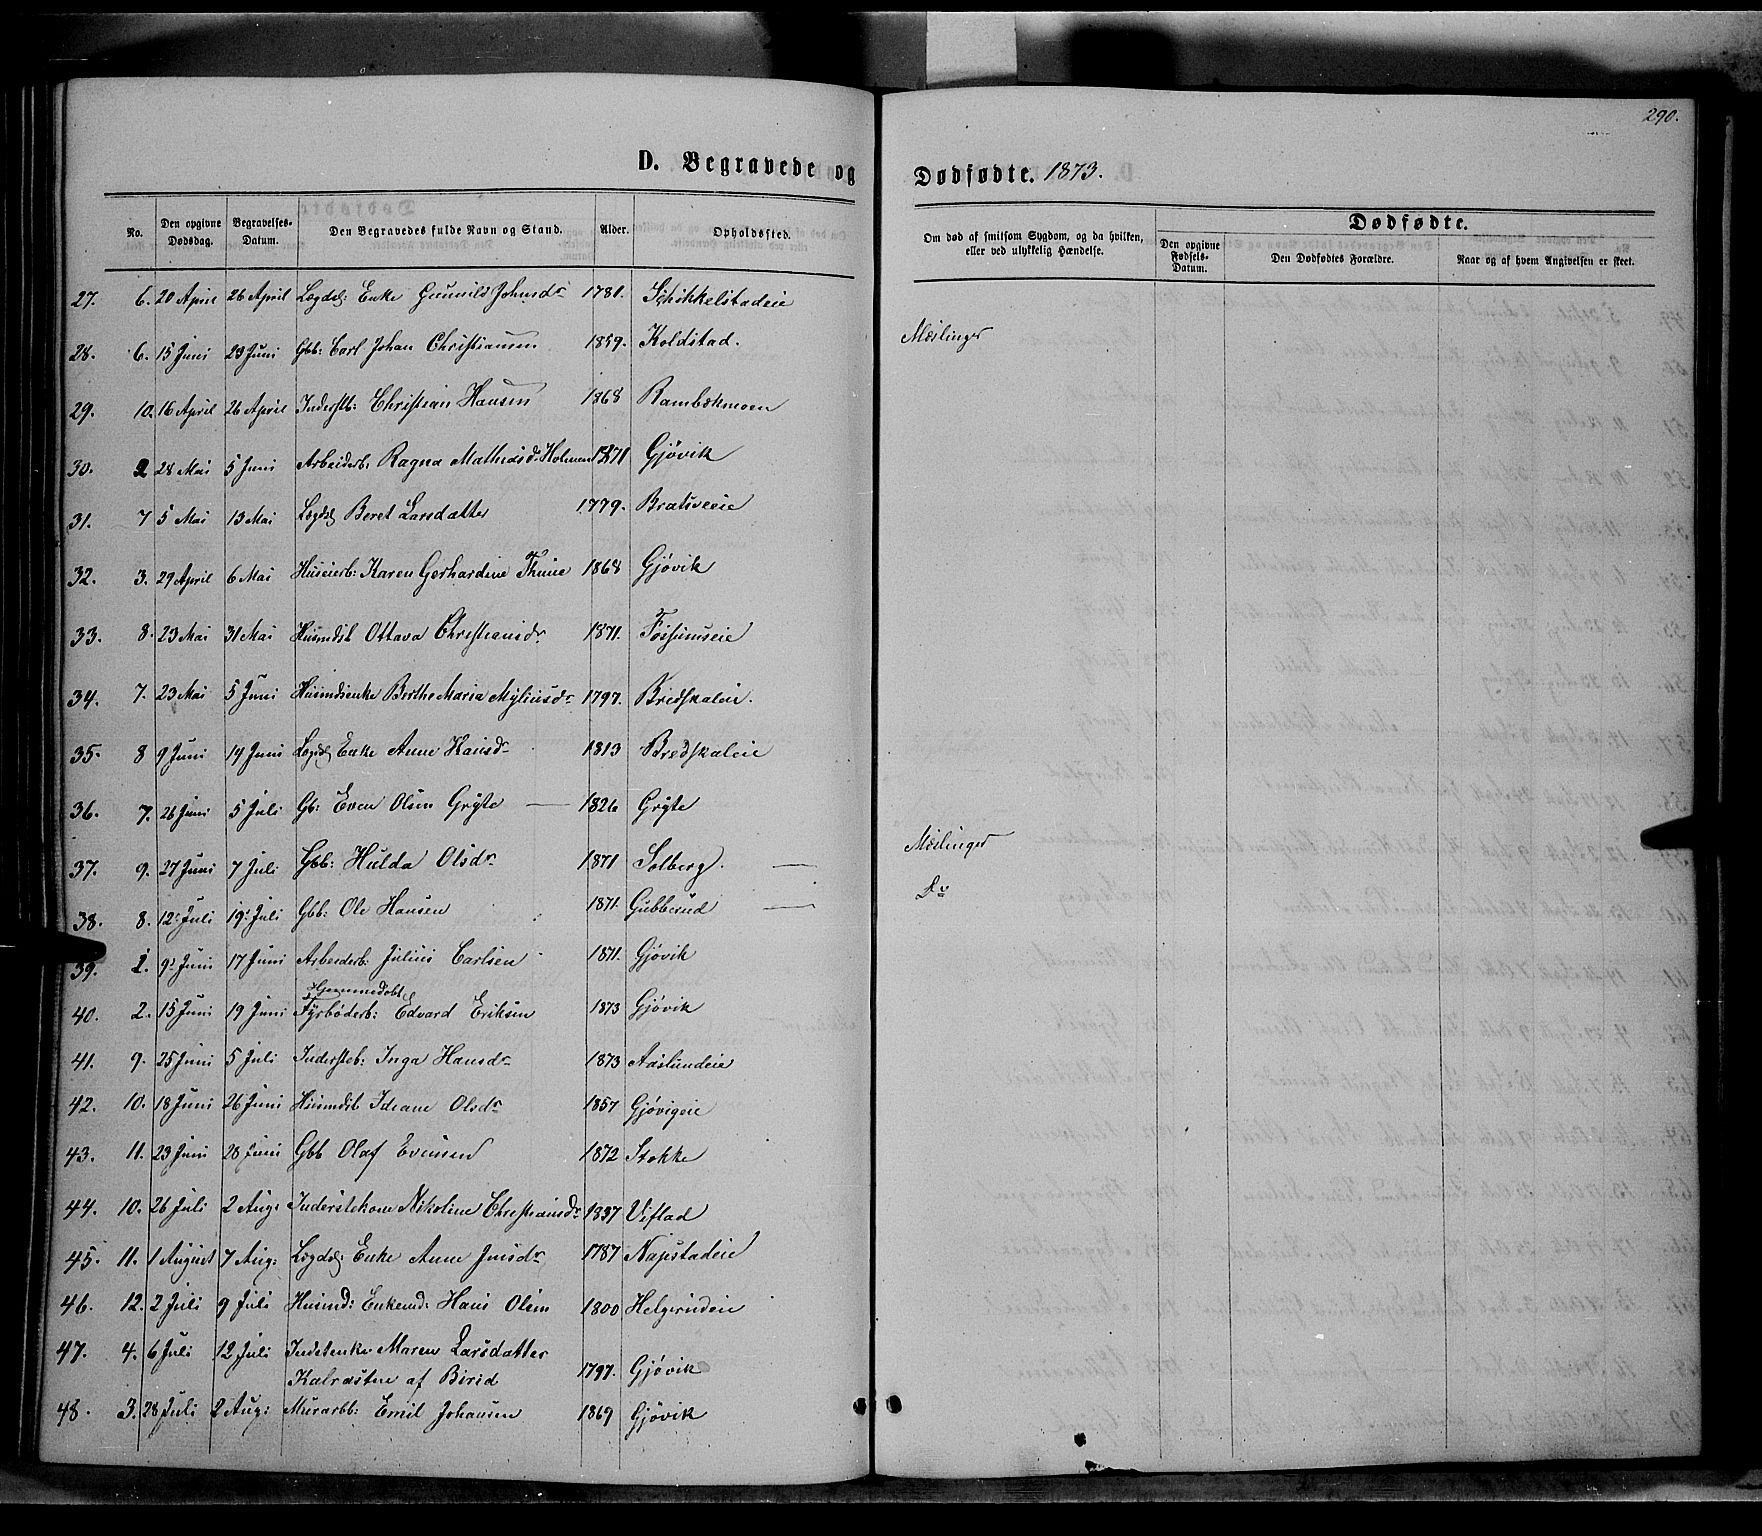 290.
D. Begravede og Dødfødte. 1873.
No. Den opgivne Dødsdag. Begravelses-Datum. Den Begravedes fulde Navn og Stand. Alder. Opholdssted. Om død af smitsom Sygdom, og da hvilken, eller ved ulykkelig Hændelse. Dødfødte. Den opgivne Fødsels-Datum. Den Dødfødtes Forældre. Naar og af hvem Angivelsen er skeet.
27. 6. 20 April 26 April Lægdsl: Enke Gunnild Johnsdr 1781. Schikkelstadeie
28. 6. 15 Juni 23 Juni Gbb: Carl Johan Christiansen 1859. Koldstad. Mæslinger
29. 10. 16 April 26 April Inderstb: Christian Hansen 1868 Rambekmoen
30. 2 28 Mai 5 Juni Arbeiderb: Ragna Mathiasdr Holmen 1871 Gjøvik
31. 7 5 Mai 13 Mai Lægdsl Beret Larsdatter 1779. Bratsveeie
32. 3. 29 April 6 Mai Huseierb: Karen Gerhardine Thune 1868 Gjøvik
33. 8. 23 Mai 31 Mai Husmdsb Ottava Christiansdr 1871. Fossumseie
34. 7. 23 Mai 5 Juni Husmdsenke Berthe Maria Myliusdr 1797. Bredskaleie.
35. 8 9 Juni 14 Juni Lægdsl Enke Anne Hansdr 1813 Bredskaleie
36. 7. 26 Juni 5 Juli Gb: Even Olsen Gryte — 1826 Gryte
37. 9. 27 Juni 7 Juli Gbb: Hulda Olsdr 1871 Solberg. — Mæslinger
38. 8. 12 Juli 19 Juli Gbb: Ole Hansen 1871. Gubberud — Do
39. 1. 9 Juni 17 Juni Arbeiderb: Julius Carlsen 1871. Gjøvik
Hjemmedøbt
40. 2. 15 Juni 19 Juni Fyrbøderb: Edvard Eriksen 1873 Gjøvik
41. 9. 25 Juni 5 Juli Indersteb: Inga Hansdr 1873 Aaslundeie
42. 10. 18 Juni 26 Juni Husmdsb Ideane Olsdr 1857 Gjøvigeie
43. 11. 23 Juni 28 Juni Gbb Olaf Evensen 1872 Stokke
44. 10. 26 Juli 2 Aug: Inderstekone Nikoline Christiansdr 1837 Vistad
45. 11. 1 August 7 Aug: Lægdsl Enke Anne Jensdr 1787 Napstadeie
46. 12. 2 Juli 9 Juli Husmd: Enkemd: Hans Olsen 1800 Helgerudeie
47. 4. 6 Juli 12 Juli Indstenke Maren Larsdatter
Kalrasten af Birid 1797. Gjøvik
48. 3. 28 Juli 2 Aug: Murarbb: Emil Johansen 1869 Gjøvik